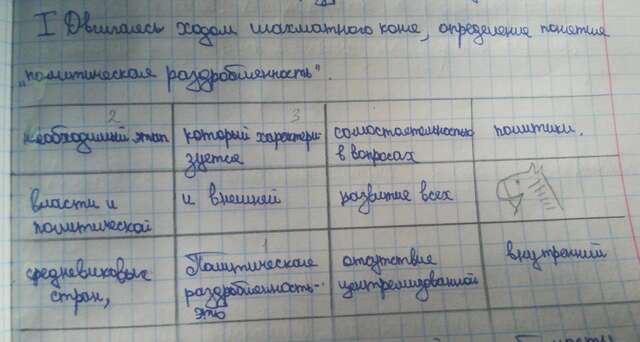 I Двигаясь ходом шахматного коня, определение понятия
„политическая раздробленность".
2 3
необходимый этап который характери- самостоятельностью политики.
зуется в вопросах
власти и и внешней развитие всех
политической
1
средневековых Политическая отсутствие внутренний
стран, раздробленность- централизованной
это